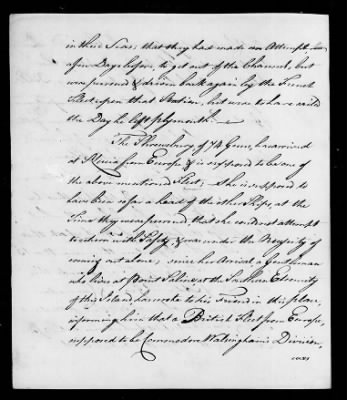 in these Seas; that they had made an Attempt, a
few Days before, to get out of the Channel, but
was pursued & driven back again by the French
Fleet upon that Station, but were to have sailed
the Day he left plymouth.
The Shrewsbury of 74 Guns, has arrived
at St Lucia from Europe & is supposed to be one of
the above mentioned Fleet; She is supposed to
have been so far a head of the other Ships, at the
Time they were pursued, that she could not attempt
to rejoin with Safety, & was under the Necessity of
coming out alone; since her Arrival a Gentleman
who lives at Point Saline at the Southern Extremity
of this Island has wrote to his Friend in this place,
informing him that a British Fleet from Europe,
supposed to be Commodore Walsingham's Division,
was